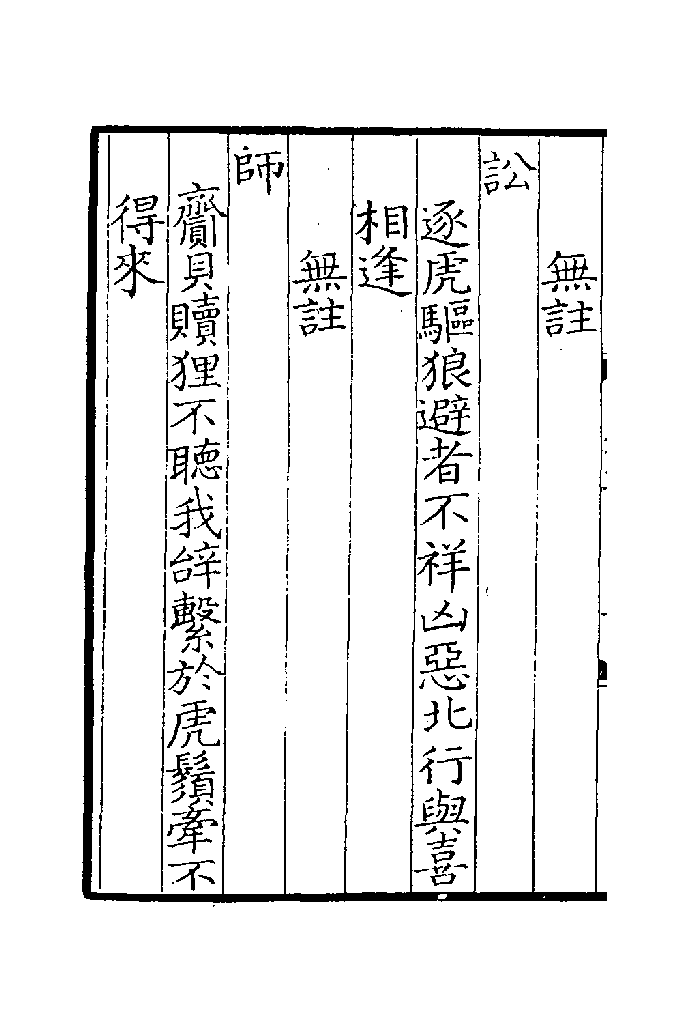 無註
訟
逐虎驅狼避者不祥凶惡北行與喜
相逢
無註
師
齎貝贖狸不聽我辝繫於虎鬚牽不
得來